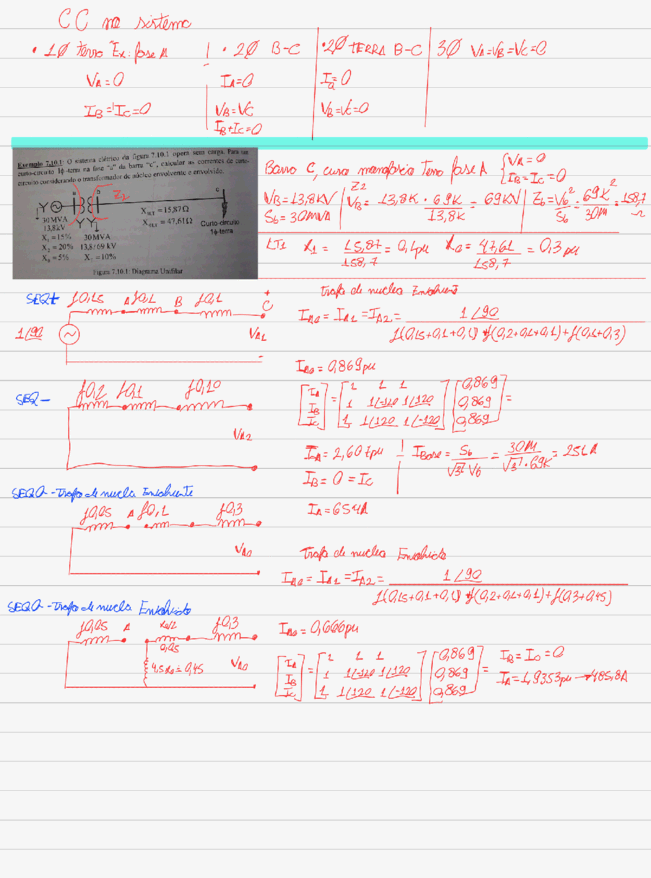 CC no sistema
• 1Ø terra Ex: fase A
VA=0
IB=IC=0
• 2Ø B-C
IA=0
VB=VC
IB+IC=0
• 2Ø TERRA B-C
Ia=0
VB=VC=0
3Ø VA=VB=VC=0
Exemplo 7.10.1: O sistema elétrico da figura 7.10.1 opera sem carga. Para um
curto-circuito 1ϕ-terra na fase "a" da barra "c", calcular as correntes de curto-
circuito considerando o transformador de núcleo envolvente e envolvido.
Z2
30 MVA
13,8kV
X1 = 15%
X2 = 20%
X0 = 5%
30 MVA
13,8/69 kV
Xt = 10%
XLT1 = 15,87Ω
XLT0 = 47,61Ω
c
Curto-circuito
1ϕ-terra
Figura 7.10.1: Diagrama Unifilar
Barra C, curva monofásica Terra fase A { VA=0
IB=IC=0
VB=13,8KV
Sb=30MVA
Z2
VB= 13,8K . 69K / 13,8K = 69KV
Zb=Vb²/Sb = 69K²/30M = 158,7 Ω
LT1 X1 = 15,87/158,7 = 0,1pu X0 = 47,61/158,7 = 0,3 pu
SEQ+ j0,15 A j0,1 B j0,1 C
+
1/90 VA1
-
Trafo de nucleo Envolvente
IA0 = IA1 = IA2 = 1∠90 / j(0,15+0,1+0,1)+j(0,2+0,1+0,1)+j(0,1+0,3)
IA0 = 0,869pu
SEQ- j0,2 j0,1 j0,10
VA2
[IA IB IC] = [1 1 1 1 1/-120 1/120 1 1/120 1/-120] [0,869 0,869 0,869] =
IA = 2,607pu
IB = 0 = IC
IBase = Sb/√3 Vb = 30M/√3 . 69K = 251A
IA = 654A
SEQ0 - Trafo de nucleo Envolvente
j0,05 A j0,1 j0,3
VA0
Trafo de nucleo Envolvido
IA0 = IA1 = IA2 = 1∠90 / j(0,15+0,1+0,1)+j(0,2+0,1+0,1)+j(0,3+0,45)
SEQ0 - Trafo de nucleo Envolvido
j0,05 A j0,3
0,05
=0,45 VA0
IA0 = 0,666pu
[IA IB IC] = [1 1 1 1 1/-120 1/120 1 1/120 1/-120] [0,869 0,869 0,869] =
IB = IC = 0
IA = 1,9353pu → 485,8A